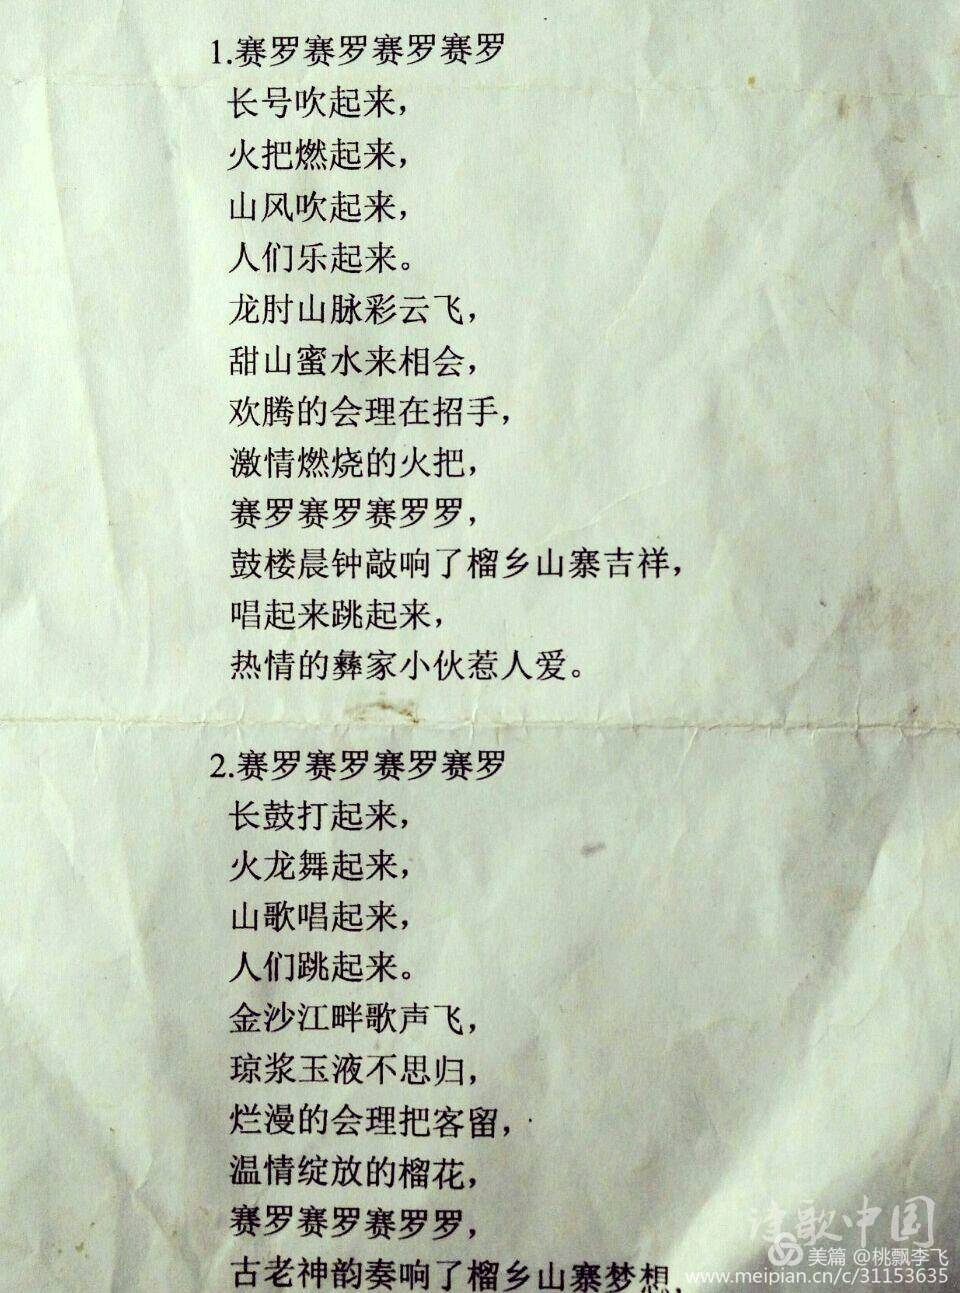 1.赛罗赛罗赛罗赛罗
长号吹起来，
火把燃起来，
山风吹起来，
人们乐起来。
龙肘山脉彩云飞，
甜山蜜水来相会，
欢腾的会理在招手，
激情燃烧的火把，
赛罗赛罗赛罗罗，
鼓楼晨钟敲响了榴乡山寨吉祥，
唱起来跳起来，
热情的彝家小伙惹人爱。
2.赛罗赛罗赛罗赛罗
长鼓打起来，
火龙舞起来，
山歌唱起来，
人们跳起来。
金沙江畔歌声飞，
琼浆玉液不思归，
烂漫的会理把客留，
温情绽放的榴花，
赛罗赛罗赛罗罗，
古老神韵奏响了榴乡山寨梦想，
诗歌中国
美篇 @桃飘李飞
www.meipian.cn/c/31153635